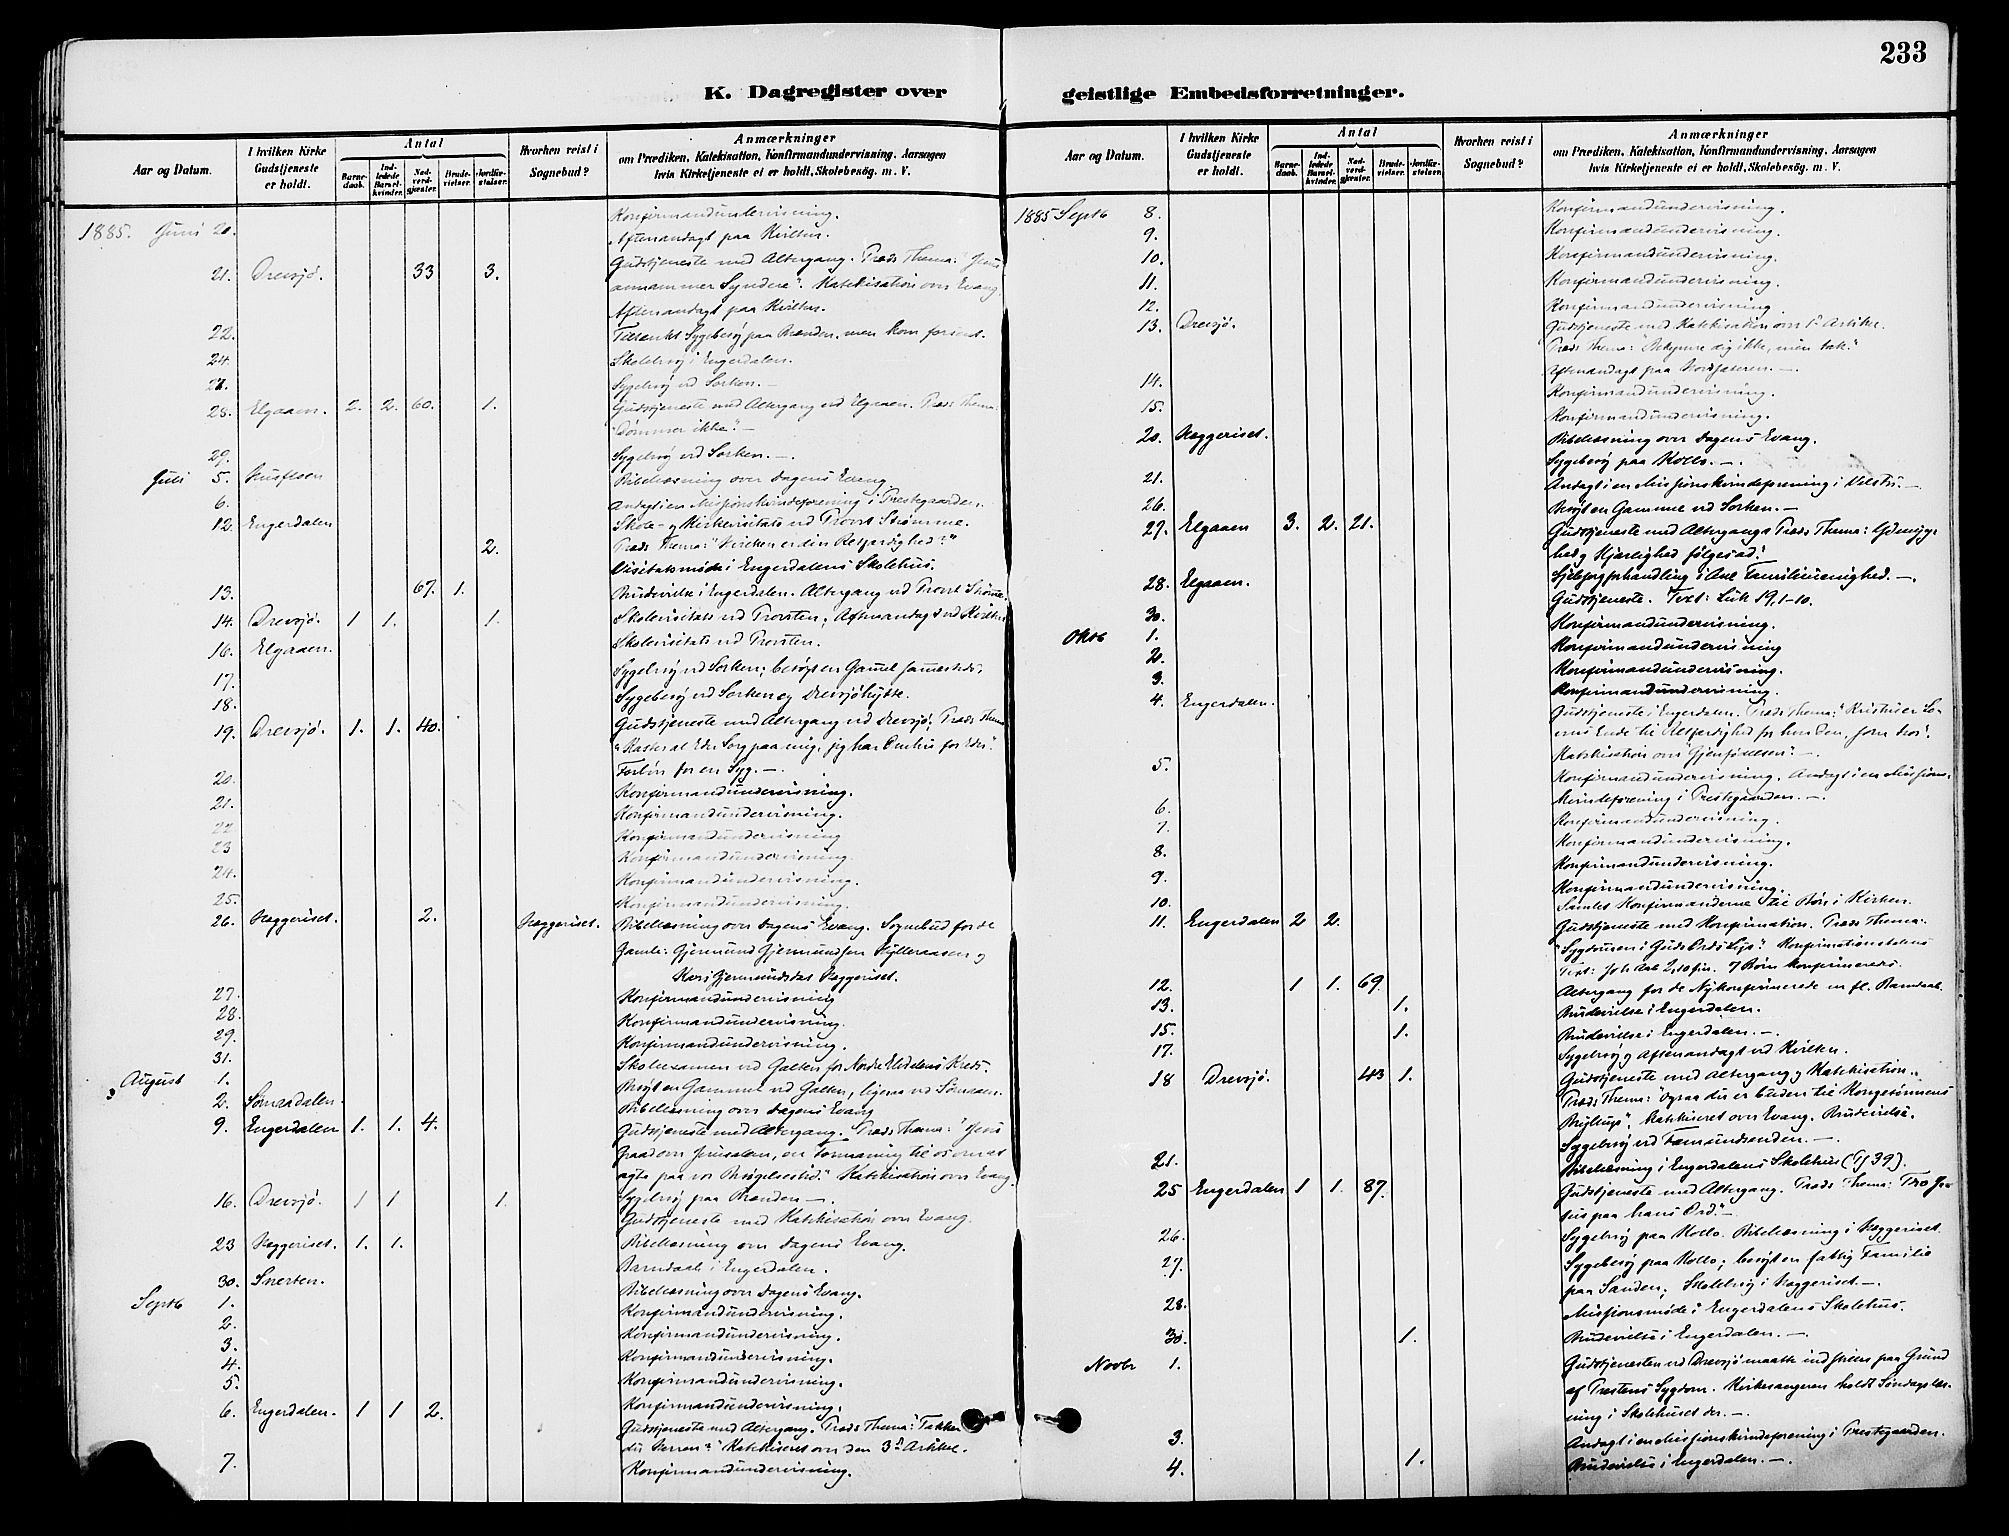 233
K. Dagregister over geistlige Embedsforretninger.
Aar og Datum.
I hvilken Kirke Gudstjeneste er holdt.
Antal
Barne-daab.
Ind-ledede Barsel-kvinder.
Nad-verd-gjester.
Brude-vielser.
Jordfæ-stelser.
Hvorhen reist i Sognebud?
Anmærkninger
om Prædiken, Katekisation, Konfirmandundervisning, Aarsagen
hvis Kirketjeneste ei er holdt, Skolebesög. m. V.
1885. Juni 20. Konfirmandundervisning.
Aftenandagt paa Kvilten.
21. Drevsjø. 33 3. Gudstjeneste med Altergang. Præds Thema: "Jesus
annammer Syndere". Katekisation over Evang.
Aftenandagt paa Kvilten.
22. Sygebesøg paa Brænden, men kom forsent.
24. Skolebesøg i Engerdalen.
Sygebesøg ved Sorken. —
28. Elgaaen. 2. 2. 60. 1. Gudstjeneste med Altergang ved Elgaaen. Præds Thema:
"Dømmer ikke". —
29. Sygebesøg ved Sorken. —.
Juli 5. Husfloen Bibellæsning over Dagens Evang.
6. Andagt i en Missionskvindeforening i Prestegaarden.
12. Engerdalen Skole- og Kirkevisitats ved Provst Strømme.
2. Præds Thema:
Visitatsmøde i Engerdalens Skolehus.
13. 67. 1. Brudevielse i Engerdalen. Altergang ved Provst Strømme.
14. Drevsjø. 1 1. 1. Skolevisitats ved Provsten. Aftenandagt ved Kvilten
16. Elgaaen. Skolevisitats ved Provsten.
17. Sygebesøg ved Sorken; besøgt en Gammel
18. Sygebesøg ved Sorken og Drevsjøhytte.
19. Drevsjø. 1. 1. 40. Gudstjeneste med Altergang ved Drevsjø; Præds Thema
"Kaster al Eders Sorg paa mig, jeg har Omhu for Eder".
Forbøn for en Syg. —.
20. Konfirmandundervisning.
21. Konfirmandundervisning.
22 Konfirmandundervisning
23 Konfirmandundervisning.
24. Konfirmandundervisning.
25. Konfirmandundervisning.
26. Hæggeriset. 2. Hæggeriset. Bibellæsning over Dagens Evang. Sognebud for de
Gamle: Gjermund Gjermundsen Hylleraasen og
Gjermundsdat. Hæggeriset.
27. Konfirmandundervisning
28. Konfirmandundervisning.
29. Konfirmandundervisning.
31. Skoleexamen ved Galten for Kreds.
August 1. Besøgt en Gammel ved Galten, ligesaa ved
2. Sømaadalen. Bibellæsning over Dagens Evang
9. Engerdalen 1. 1. 4. Gudstjeneste med Altergang. Præds Thema: "Jesu
Graad over Jerusalem, en Formaning til os om at
agte paa vor Besøgelsestid." Katekisation over Evang.
Sygebesøg paa Brænden —.
16. Drevsjø. 1 1 1. Gudstjeneste med Katekisation over Evang.
23 Hæggeriset. 1. 1. Bibellæsning over Dagens Evang.
Barnedaab i Engerdalen.
30. Snerten. Bibellæsning over Dagens Evang.
Septb 1. Konfirmandundervisning.
2. Konfirmandundervisning.
3. Konfirmandundervisning.
4. Konfirmandundervisning.
5. Konfirmandundervisning.
6. Engerdalen. 1 1 2. Gudstjeneste med Altergang. Præds Thema: "Takker
du Herren?" Katekiseret over den 3die Artikel.
7. Konfirmandundervisning.
Aar og Datum.
I hvilken Kirke Gudstjeneste er holdt.
Antal
Barne-daab.
Ind-ledede Barsel-kvinder.
Nad-verd-gjester.
Brude-vielser.
Jordfæ-stelser.
Hvorhen reist i Sognebud?
Anmærkninger
om Prædiken, Katekisation, Konfirmandundervisning, Aarsagen
hvis Kirketjeneste ei er holdt, Skolebesög. m. V.
1885 Septb 8. Konfirmandundervisning.
9. Konfirmandundervisning.
10. Konfirmandundervisning.
11. Konfirmandundervisning.
12. Konfirmandundervisning.
13. Drevsjø. Gudstjeneste med Katekisation over 1ste Artikel.
Præds Thema: "Bekymre dig ikke, men tak".
Aftenandagt paa —.
14. Konfirmandundervisning.
15. Konfirmandundervisning.
20. Hæggeriset. Bibellæsning over Dagens Evang.
Sygebesøg paa Kollo. —.
21. Andagt i en Missionskvindeforening i —
26. Besøgt en Gamme ved Sorken. —
27. Elgaaen 3. 2. 21. Gudstjeneste med Altergang. Præds Thema: Ydmyg-
hed og Kjærlighed følges ad".
Familieuenighed. —.
28. Elgaaen. Gudstjeneste. Text: Luk 19, 1-10.
30. Konfirmandundervisning.
Oktb 1. Konfirmandundervisning
2. Konfirmandundervisning.
3. Konfirmandundervisning.
4. Engerdalen. Gudstjeneste i Engerdalen. Præds Thema: "Kristus er Lo-
vens Ende til Retfærdighed for hver Den, som tror".
Katekisation over "Gjenfødelsen" —.
5. Konfirmandundervisning. Andagt i en Missions-
kvindeforening i Prestegaarden. —.
6. Konfirmandundervisning.
7. Konfirmandundervisning.
8. Konfirmandundervisning.
9. Konfirmandundervisning.
10. Samlet Konfirmanderne til Bøn i Kirken.
11. Engerdalen 2 2. Gudstjeneste med Konfirmation. Præds Thema:
"Sygdommen i Guds Ords Lys." Konfirmationstalens
Text: Joh. Aab. 2, 10 fin. 7 Børn konfirmerede.
12. 1 1. 69. Altergang for de Nykonfirmerede m. fl. Barnedaab.
13. 1. Brudevielse i Engerdalen.
15. 1. Brudevielse i Engerdalen. —.
17. Sygebesøg og Aftenandagt ved Kvilten.
18 Drevsjø. 43 1. Gudstjeneste med Altergang og Katekisation.
Præds Thema: "Ogsaa du er buden til Kongesønnens
Bryllup". Katekiseret over Evang. Brudevielse.
Sygebesøg ved Fæmundsenden. —.
21. Bibellæsning i Engerdalens Skolehus (Ps 39).
25 Engerdalen 1 1. 87. Gudstjeneste med Altergang. Præds Thema: "Tro Je-
sus paa hans Ord". —
26. Sygebesøg paa Kollo. Bibellæsning i Hæggeriset.
27. Sygebesøg paa Kollo; besøgt en fattig Familie
paa Sanden; Skolebesøg i Hæggeriset. —.
28. Missionsmøde i Engerdalens Skolehus.
30. 1. Brudevielse i Engerdalen. —.
Novbr 1. Gudstjenesten ved Drevsjø maatte indstilles paa Grund
af Prestens Sygdom. Kirkesangeren holdt Søndagslæs-
ning i Skolehuset der. —.
3. Andagt i en Missionskvindeforening i Prestegaarden.
4. 1. Brudevielse i Engerdalen. —.